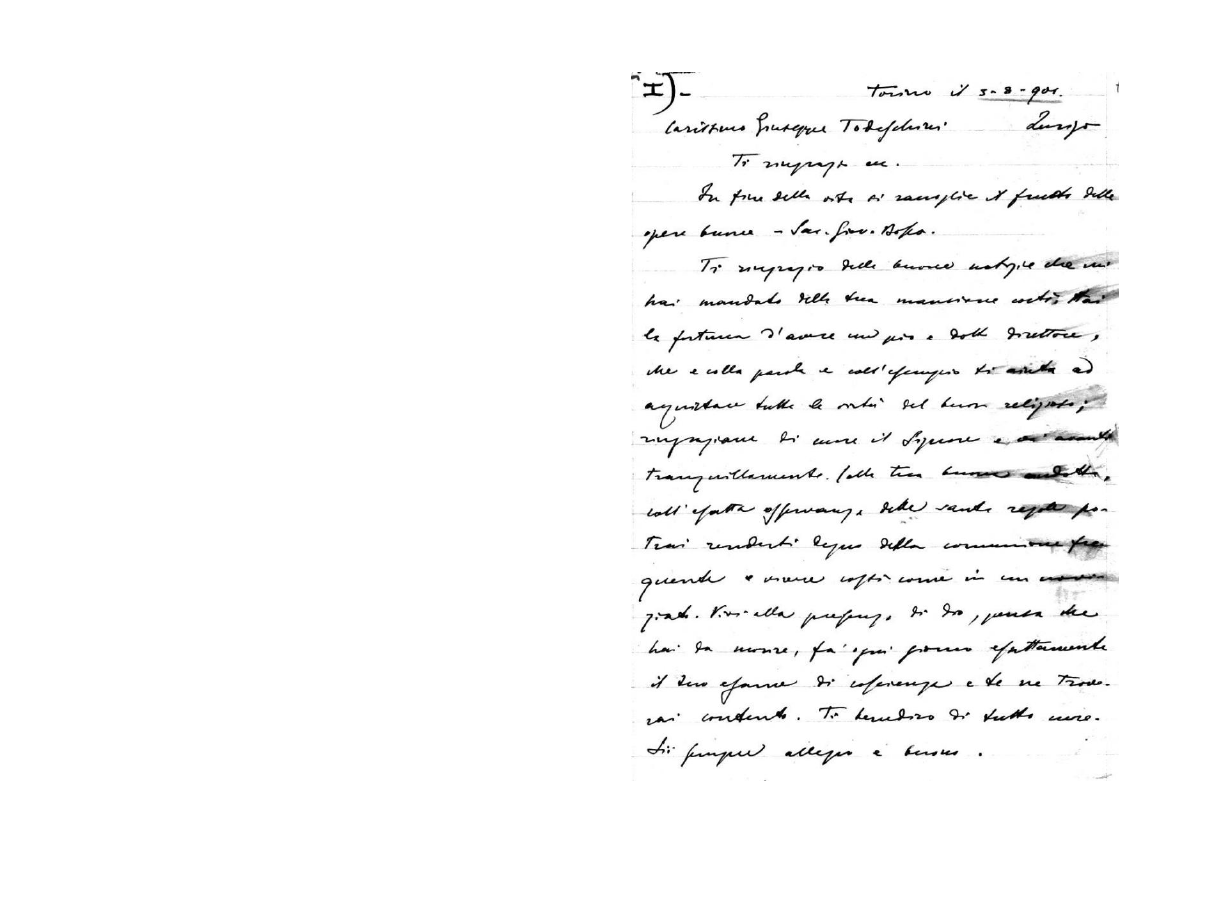 I)-
Torino il 3-8-901.
Carissimo Giuseppe Todeschini Zurigo
Ti ringrazio ecc.
In fine della vita si raccoglie il frutto delle
opere buone - Sac. Giov. Bosco.
Ti ringrazio delle buone notizie che mi
hai mandato della tua mansione costì; Hai
la fortuna d'avere un pio e dotto direttore,
che e colla parola e coll'esempio ti aiuta ad
acquistare tutte le virtù del buon religioso;
ringraziane di cuore il Signore e va' avanti
tranquillamente. Colla tua buona condotta,
coll'esatta osservanza delle sante regole po-
trai renderti degno della comunione fre
quente e vivere costì come in un novi-
ziato. Vivi alla presenza di Dio, pensa che
hai da morire, fa' ogni giorno esattamente
il tuo esame di coscienza e te ne trove-
rai contento. Ti benedico di tutto cuore.
Sii sempre allegro e buono.